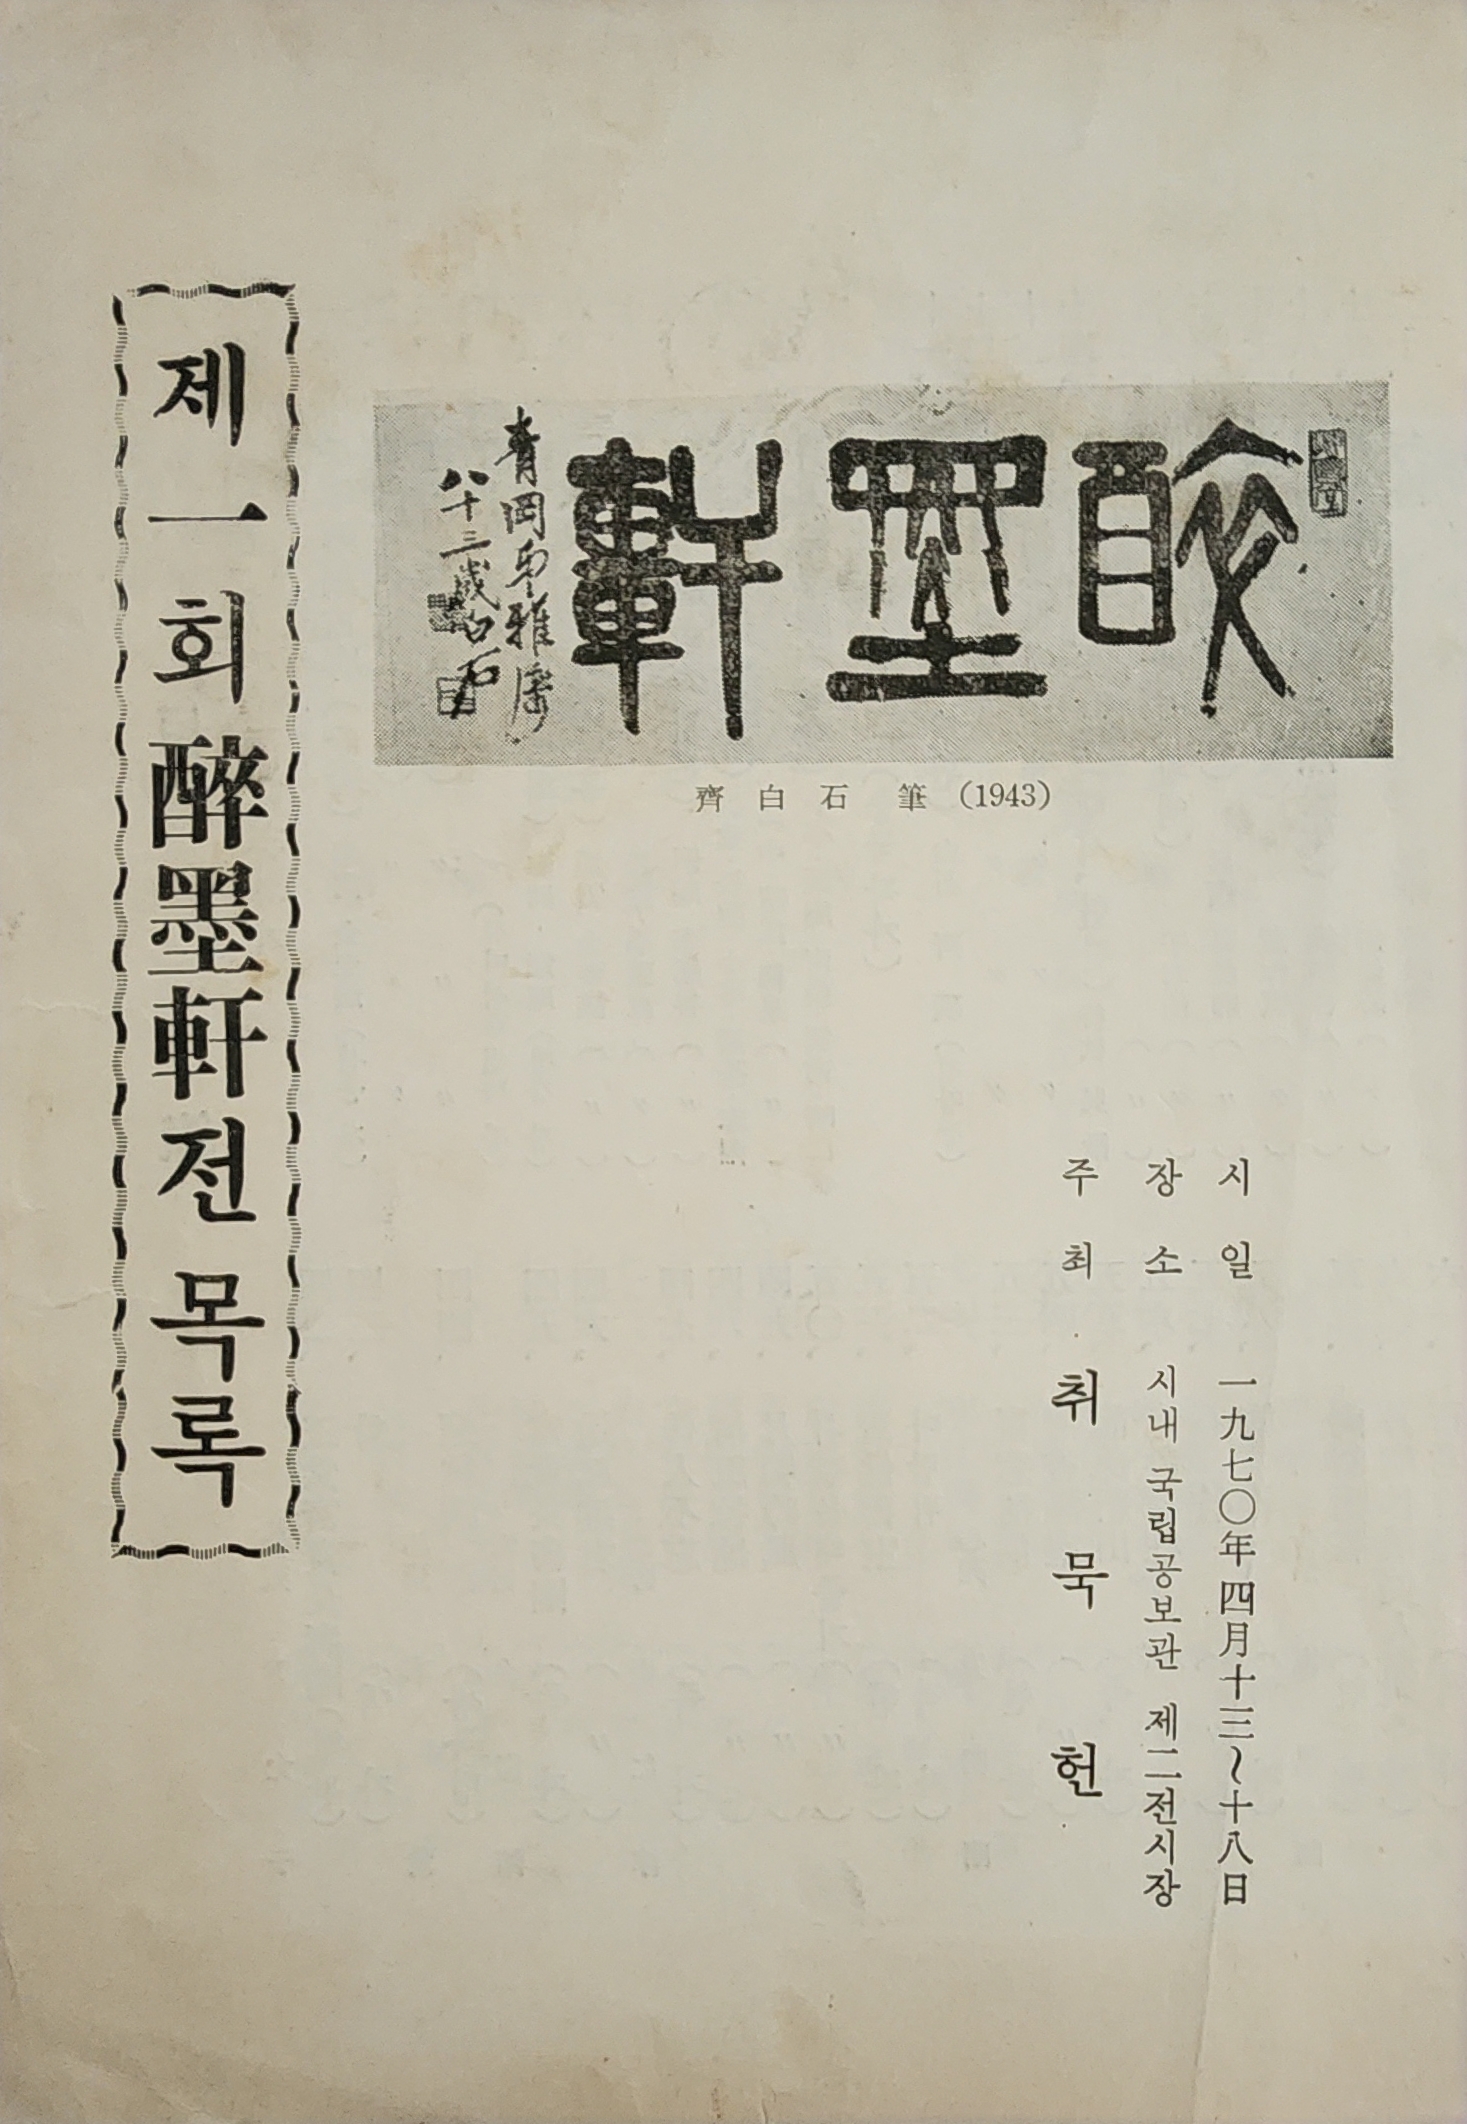 醉墨軒
青岡吾兄雅屬
八十三歲白石
齊白石 筆 (1943)
시일 一九七〇年 四月十三~十八日
장소 시내 국립공보관 제二전시장
주최 취묵헌
제一회 醉墨軒전 목록